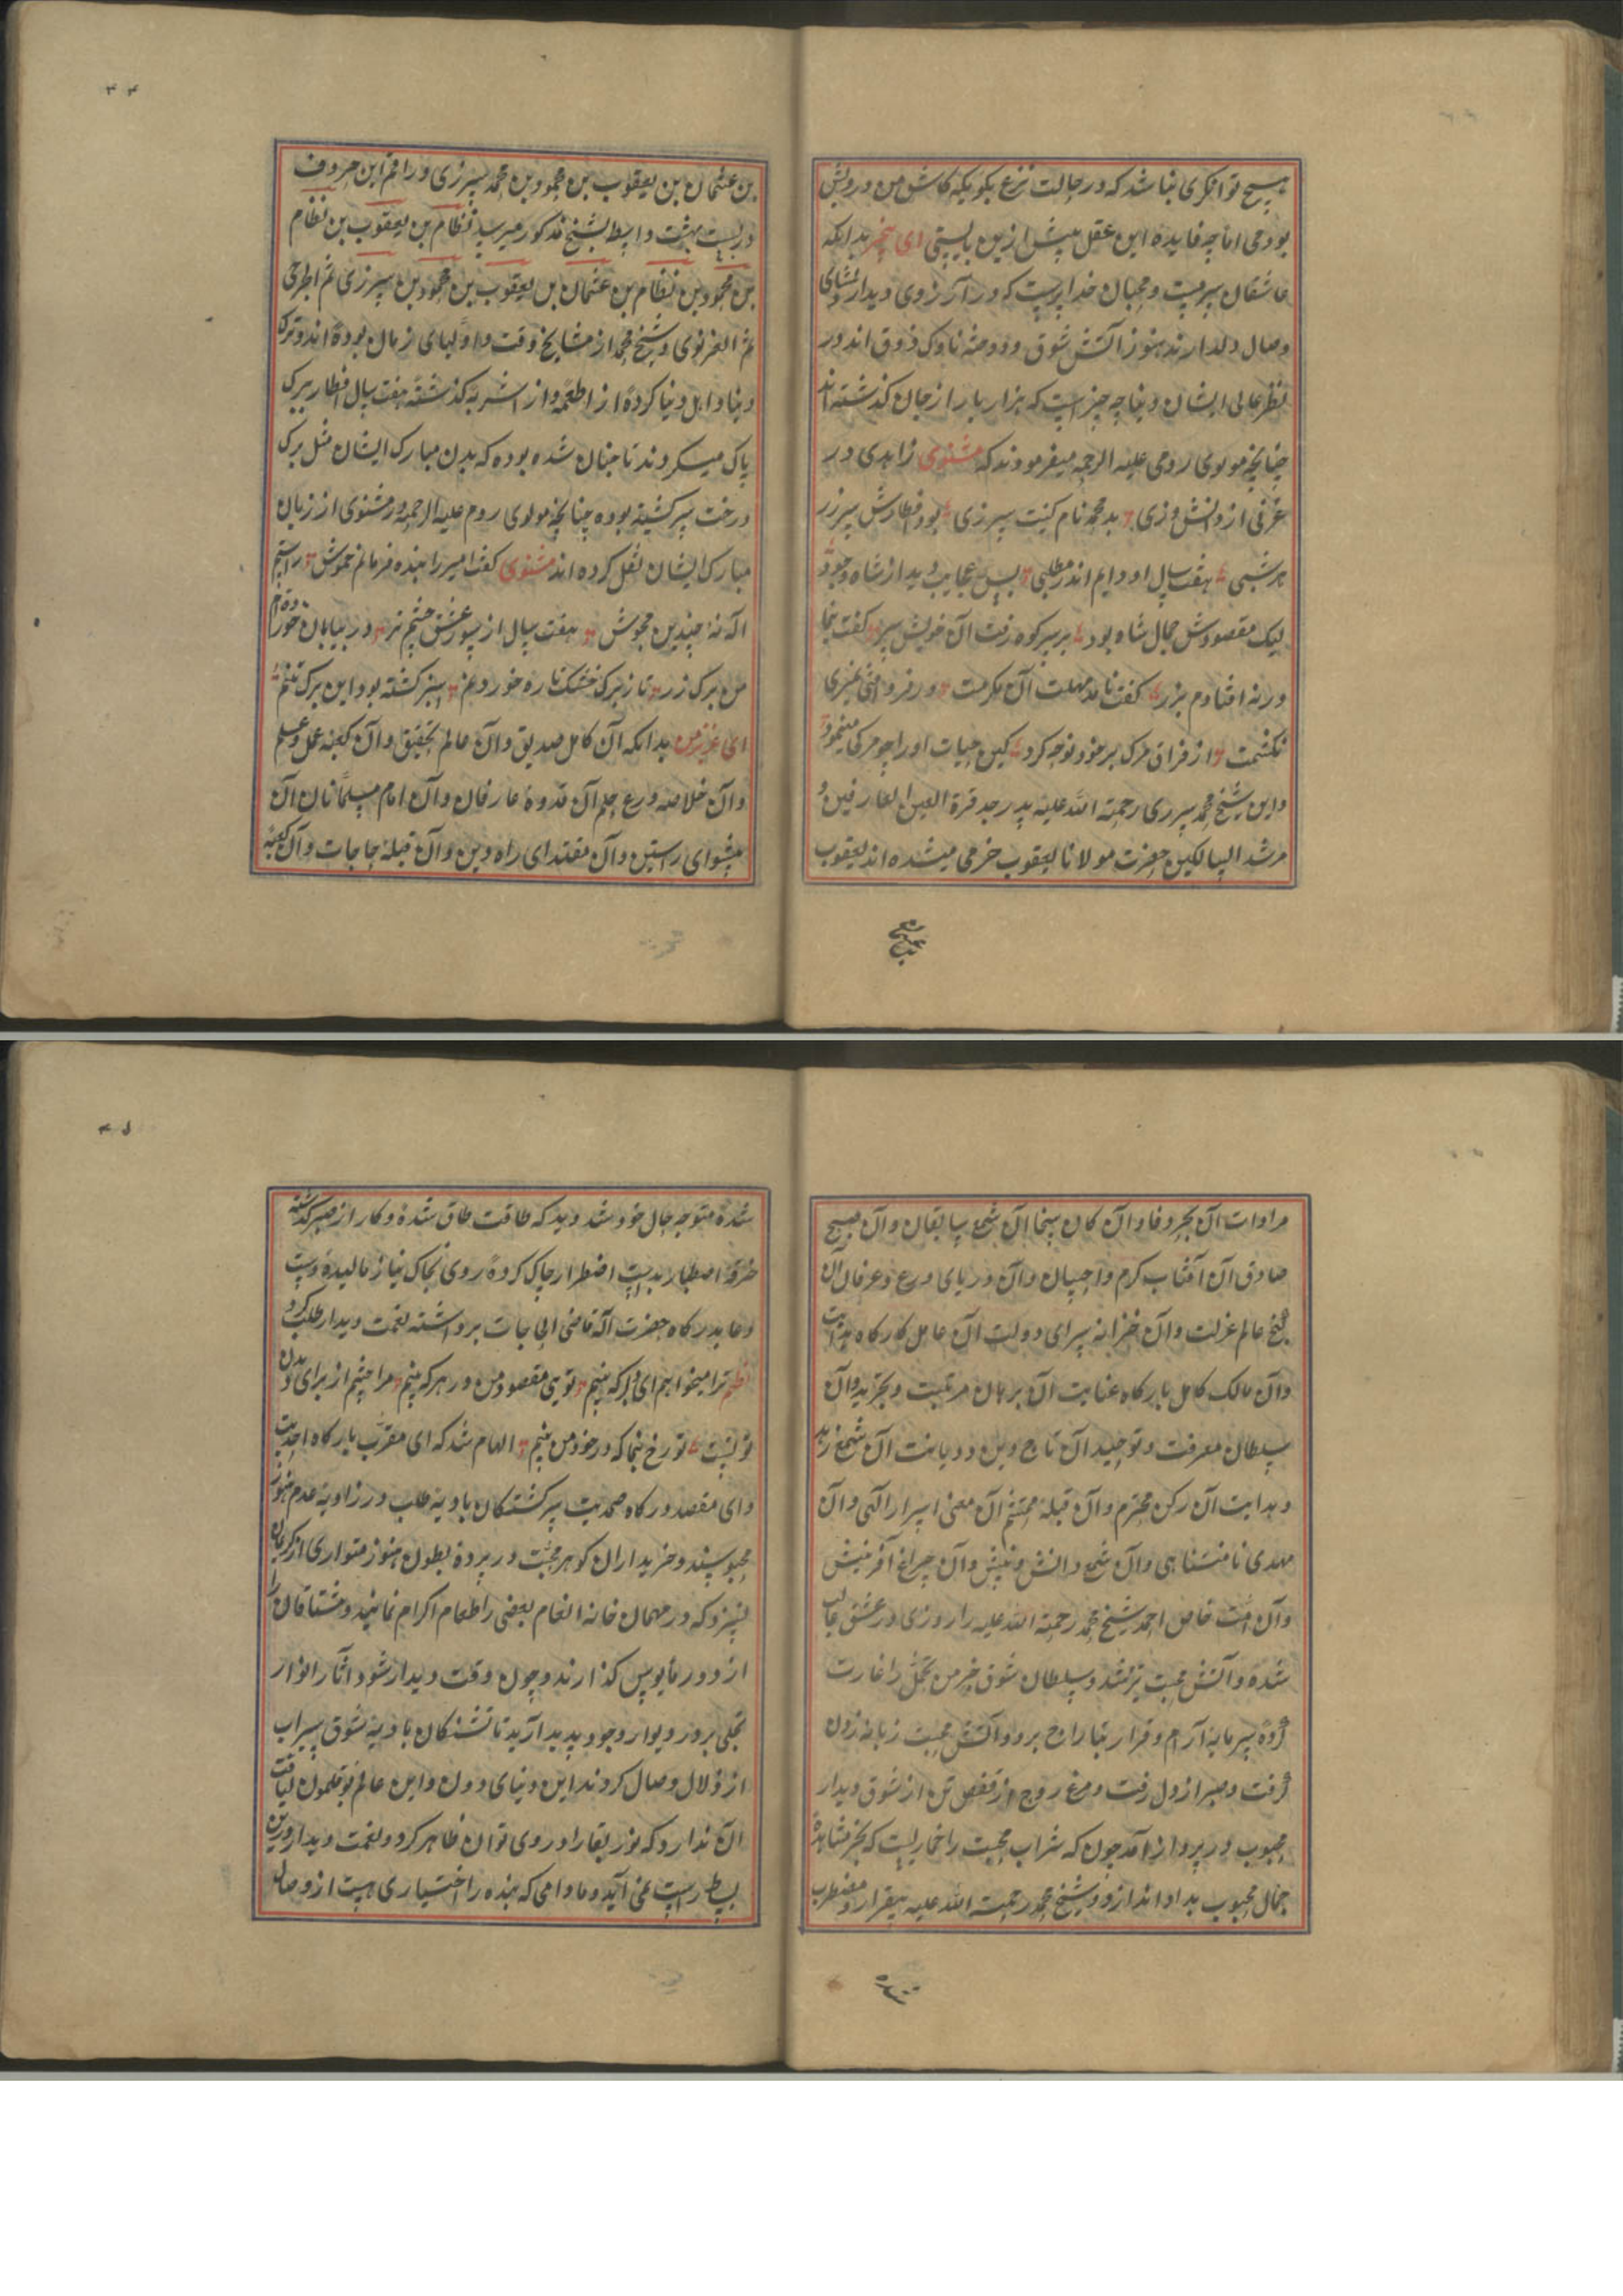 هیچ توانکری نباشد که در حالت نزع بکوید که کاش من درویش
بودمی اما چه فایده این عقل پیش ازین بایستی ای بدانکه
عاشقان سرمست و محبان خداپرست که در آرزوی دیدار
وصال دلدارند هنوز آتش شوق و ناوک ذوق اند در
نظر عالی ایشان دنیا چه چیز است که هزار بار از جان کذشته اند
چنانچه مولوی رومی علیه الرحمه میفرمودند که مثنوی زاهدی در
غزنی از دانش مزی بد محمد نام کنیت سررزی بود افطارش سررز
هر شبی هفت سال او دایم اندر مطلبی بس عجایب دید از شاه وجود
لیک مقصودش جمال شاه بود بر سر کوه رفت آن خویش سیر کفت بنما
ورنه افتادم بزیر کفت نامد مهلت آن مکرمت ور فرو افتی نمیری
نکشمت از فراق مرک بر خود نوحه کرد کین حیات او را چو مرکی مینمود
و این شیخ محمد سررزی رحمة الله علیه پدر جد قرة العین العارفین و
مرشد السالکین حضرت مولانا یعقوب چرخی میشده اند یعقوب
بن عثمان
بن عثمان بن یعقوب بن محمود بن محمد سررزی و راقم این حروف
در بیست بهشت واسط بشیخ مذکور میرسد نظام بن یعقوب بن نظام
بن محمود بن نظام بن عثمان بن یعقوب بن محمود بن سررزی ثم
ثم الغزنوی و شیخ محمد از مشایخ وقت و اولیای زمان بوده اند و ترک
دنیا و اهل دنیا کرده از اطعمه و از اشربه کذشته هفت سال افطار ببرک
پاک میکردند تا چنان شده بوده که بدن مبارک ایشان مثل برک
درخت سبز کشته بوده چنانچه مولوی روم علیه الرحمه در مثنوی از زبان
مبارک ایشان نقل کرده اند مثنوی کفت امیرا بنده فرمانم خموش ز آتشم
آکه نهٔ چندین مجوش هفت سال از سوز عشق جسم پز در بیابان خورده ام
من برک رز تا ز برک خشک و تازه خوردنم سبز کشته بود این برک تنم
ای عزیز من بدانکه آن کامل صدیق و آن عالم تحقیق و آن کعبه عمل و علم
و آن خلاصه ورع و حلم آن قدوه عارفان و آن امام مسلمانان آن
پیشوای راستین و آن مقتدای راه دین و آن قبله حاجات و آن کعبه
مرادات آن بحر وفا و آن کان سخا آن شمع سابقان و آن صبح
صادق آن آفتاب کرم و احسان و آن دریای ورع و عرفان آن
کنج عالم عزلت و آن خزانه سرای دولت آن عامل کارکاه هدایت
و آن مالک کامل بارکاه عنایت آن برهان مرتبت و تجرید و آن
سلطان معرفت و توحید آن تاج دین و دیانت آن شمع زهد
و هدایت آن رکن محترم و آن قبله محتشم آن معنی اسرار الهی و آن
مهدی نامتناهی و آن شمع دانش و بینش و آن چراغ آفرینش
و آن امت خاص احمد شیخ محمد رحمة الله علیه را روزی در عشق غالب
شده و آتش محبت تیز شد و سلطان شوق خرمن تحمل را غارت
کرده سرمایه آرام و قرار بتاراج برد و آتش محبت زبانه زدن
کرفت و صبر از دل رفت و مرغ روح از قفص تن از شوق دیدار
محبوب در پرواز آمد چون که شراب محبت را خماریست که بجز مشاهدهٔ
جمال محبوب مداوا ندارد و شیخ محمد رحمة الله علیه بیقرار و مضطرب
شده
شده متوجه حال خود شد دید که طاقت طاق شده و کار از صبر کذشته
خرقه اصطبار بدست اضطرار چاک کرده روی بخاک نیاز مالیده و دست
دعا بدرکاه حضرت آله قاضی الحاجات برداشته نعمت دیدار طلب کرد
نظم ترا میخواهم ای دلبر که بینم تویی مقصود من در هر که بینم مرا چشم از برای دیدن
تویست تو رخ بنما که در خود من بینم الهام شد که ای مقرب بارکاه احدیت
و ای مقصد درکاه صمدیت سرکشتکان بادیه طلب در زاویه عدم هنوز
محبوسند و خریداران کوهر محبت در پردهٔ بطون هنوز متواری از کریمان
نسزد که در مهمان خانه انعام بعضی را طعام اکرام نمایند و مشتاقان را
از دور مأیوس کذارند و چون وقت دیدار شود آثار انوار
تجلی بر در و دیوار وجود پدید آید تا تشنکان بادیه شوق سیراب
از زلال وصال کردند این دنیای دون و این عالم بوقلمون لیاقت
آن ندارد که نور بقا را در روی توان ظاهر کرد و نعمت دیدار درین
بساط راست نمی آید و مادامی که بنده را اختیاری هست از وصال